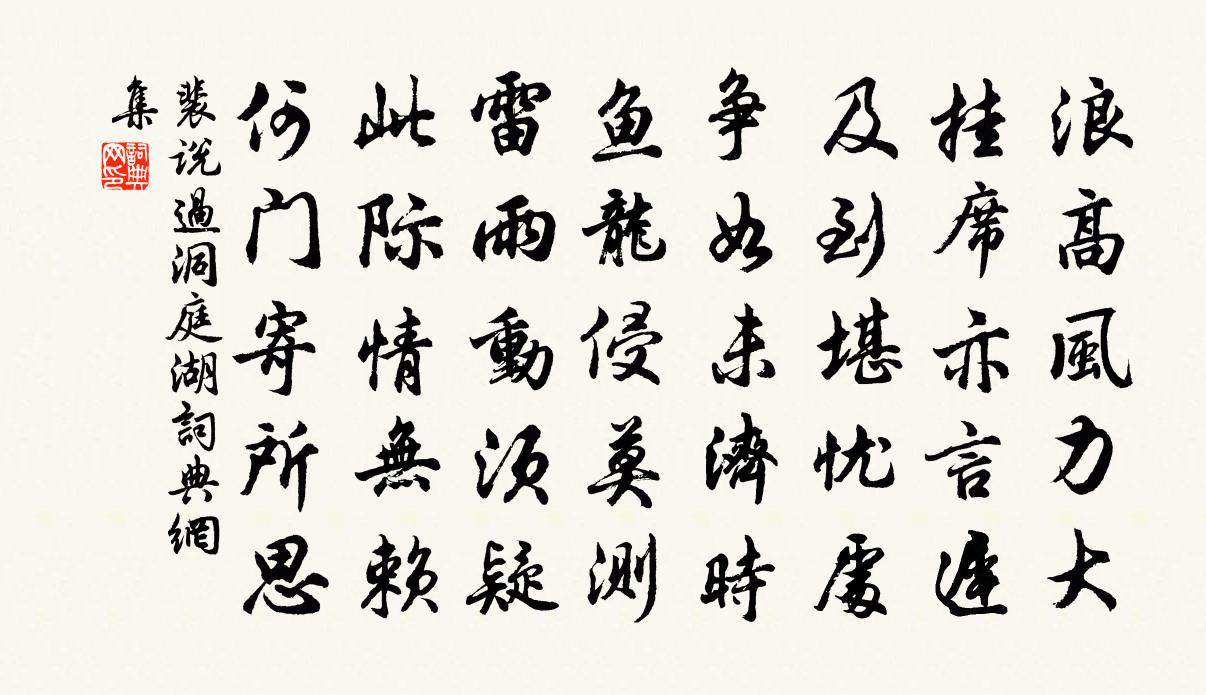 浪高風力大
挂席亦言遲
及到堪忧處
争如未濟時
鱼龍侵莫測
雷雨動须疑
此际情無赖
何门寄所思
裴说過洞庭湖詞典網
集
詞典
网印